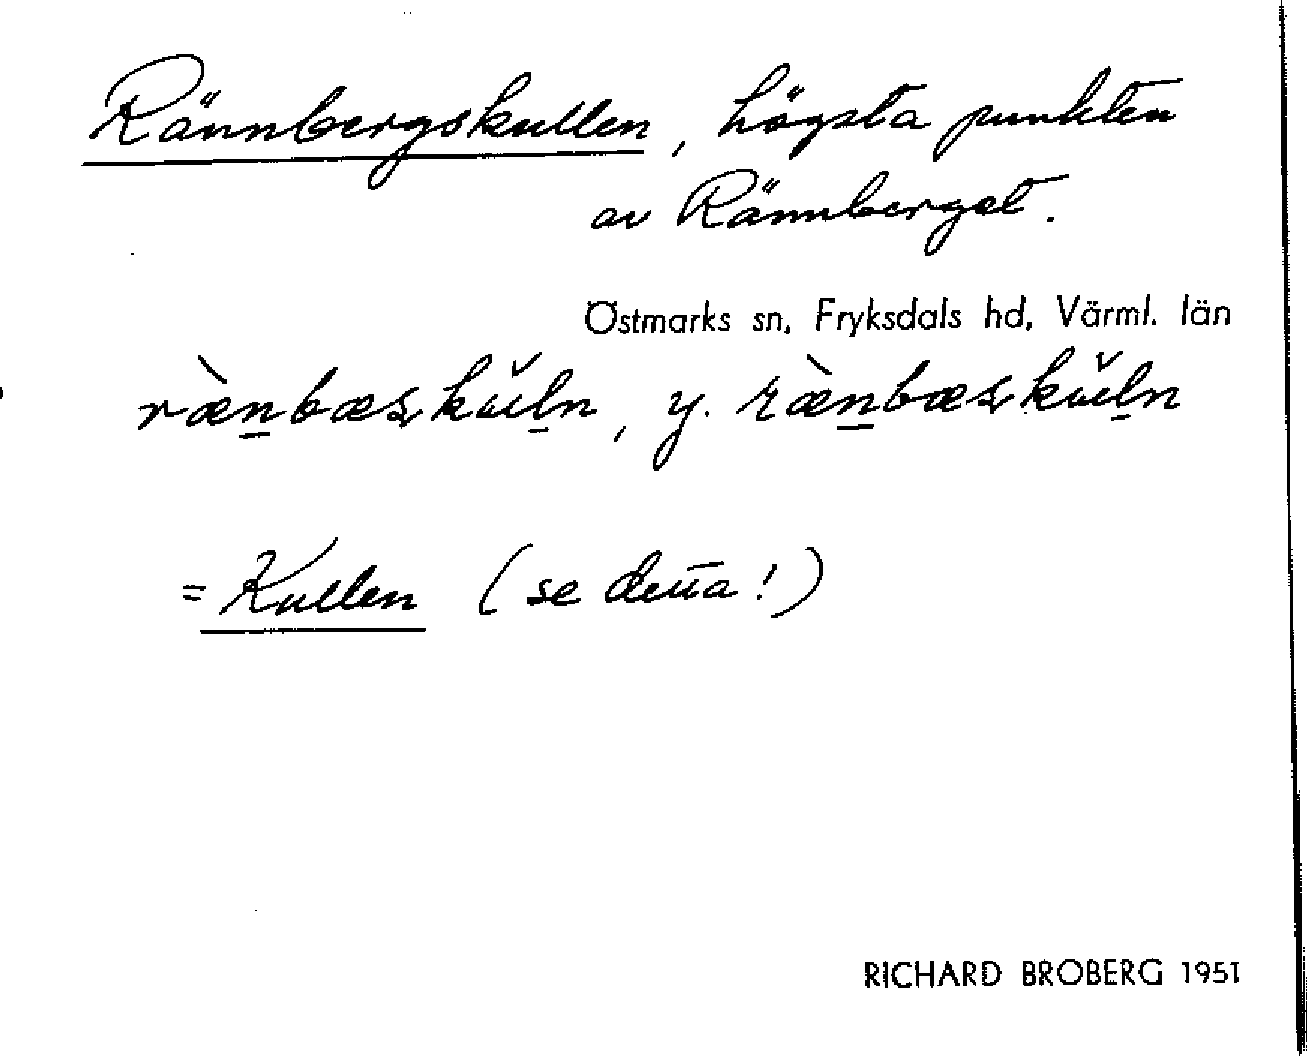 Rännbergskullen, högsta punkten
av Rännberget.
Östmarks sn, Fryksdals hd, Värml. län
ræ̀n̲bæskŭl̲n, y. ræ̀n̲bæskŭl̲n
= Kullen (se detta!)
RICHARD BROBERG 1951